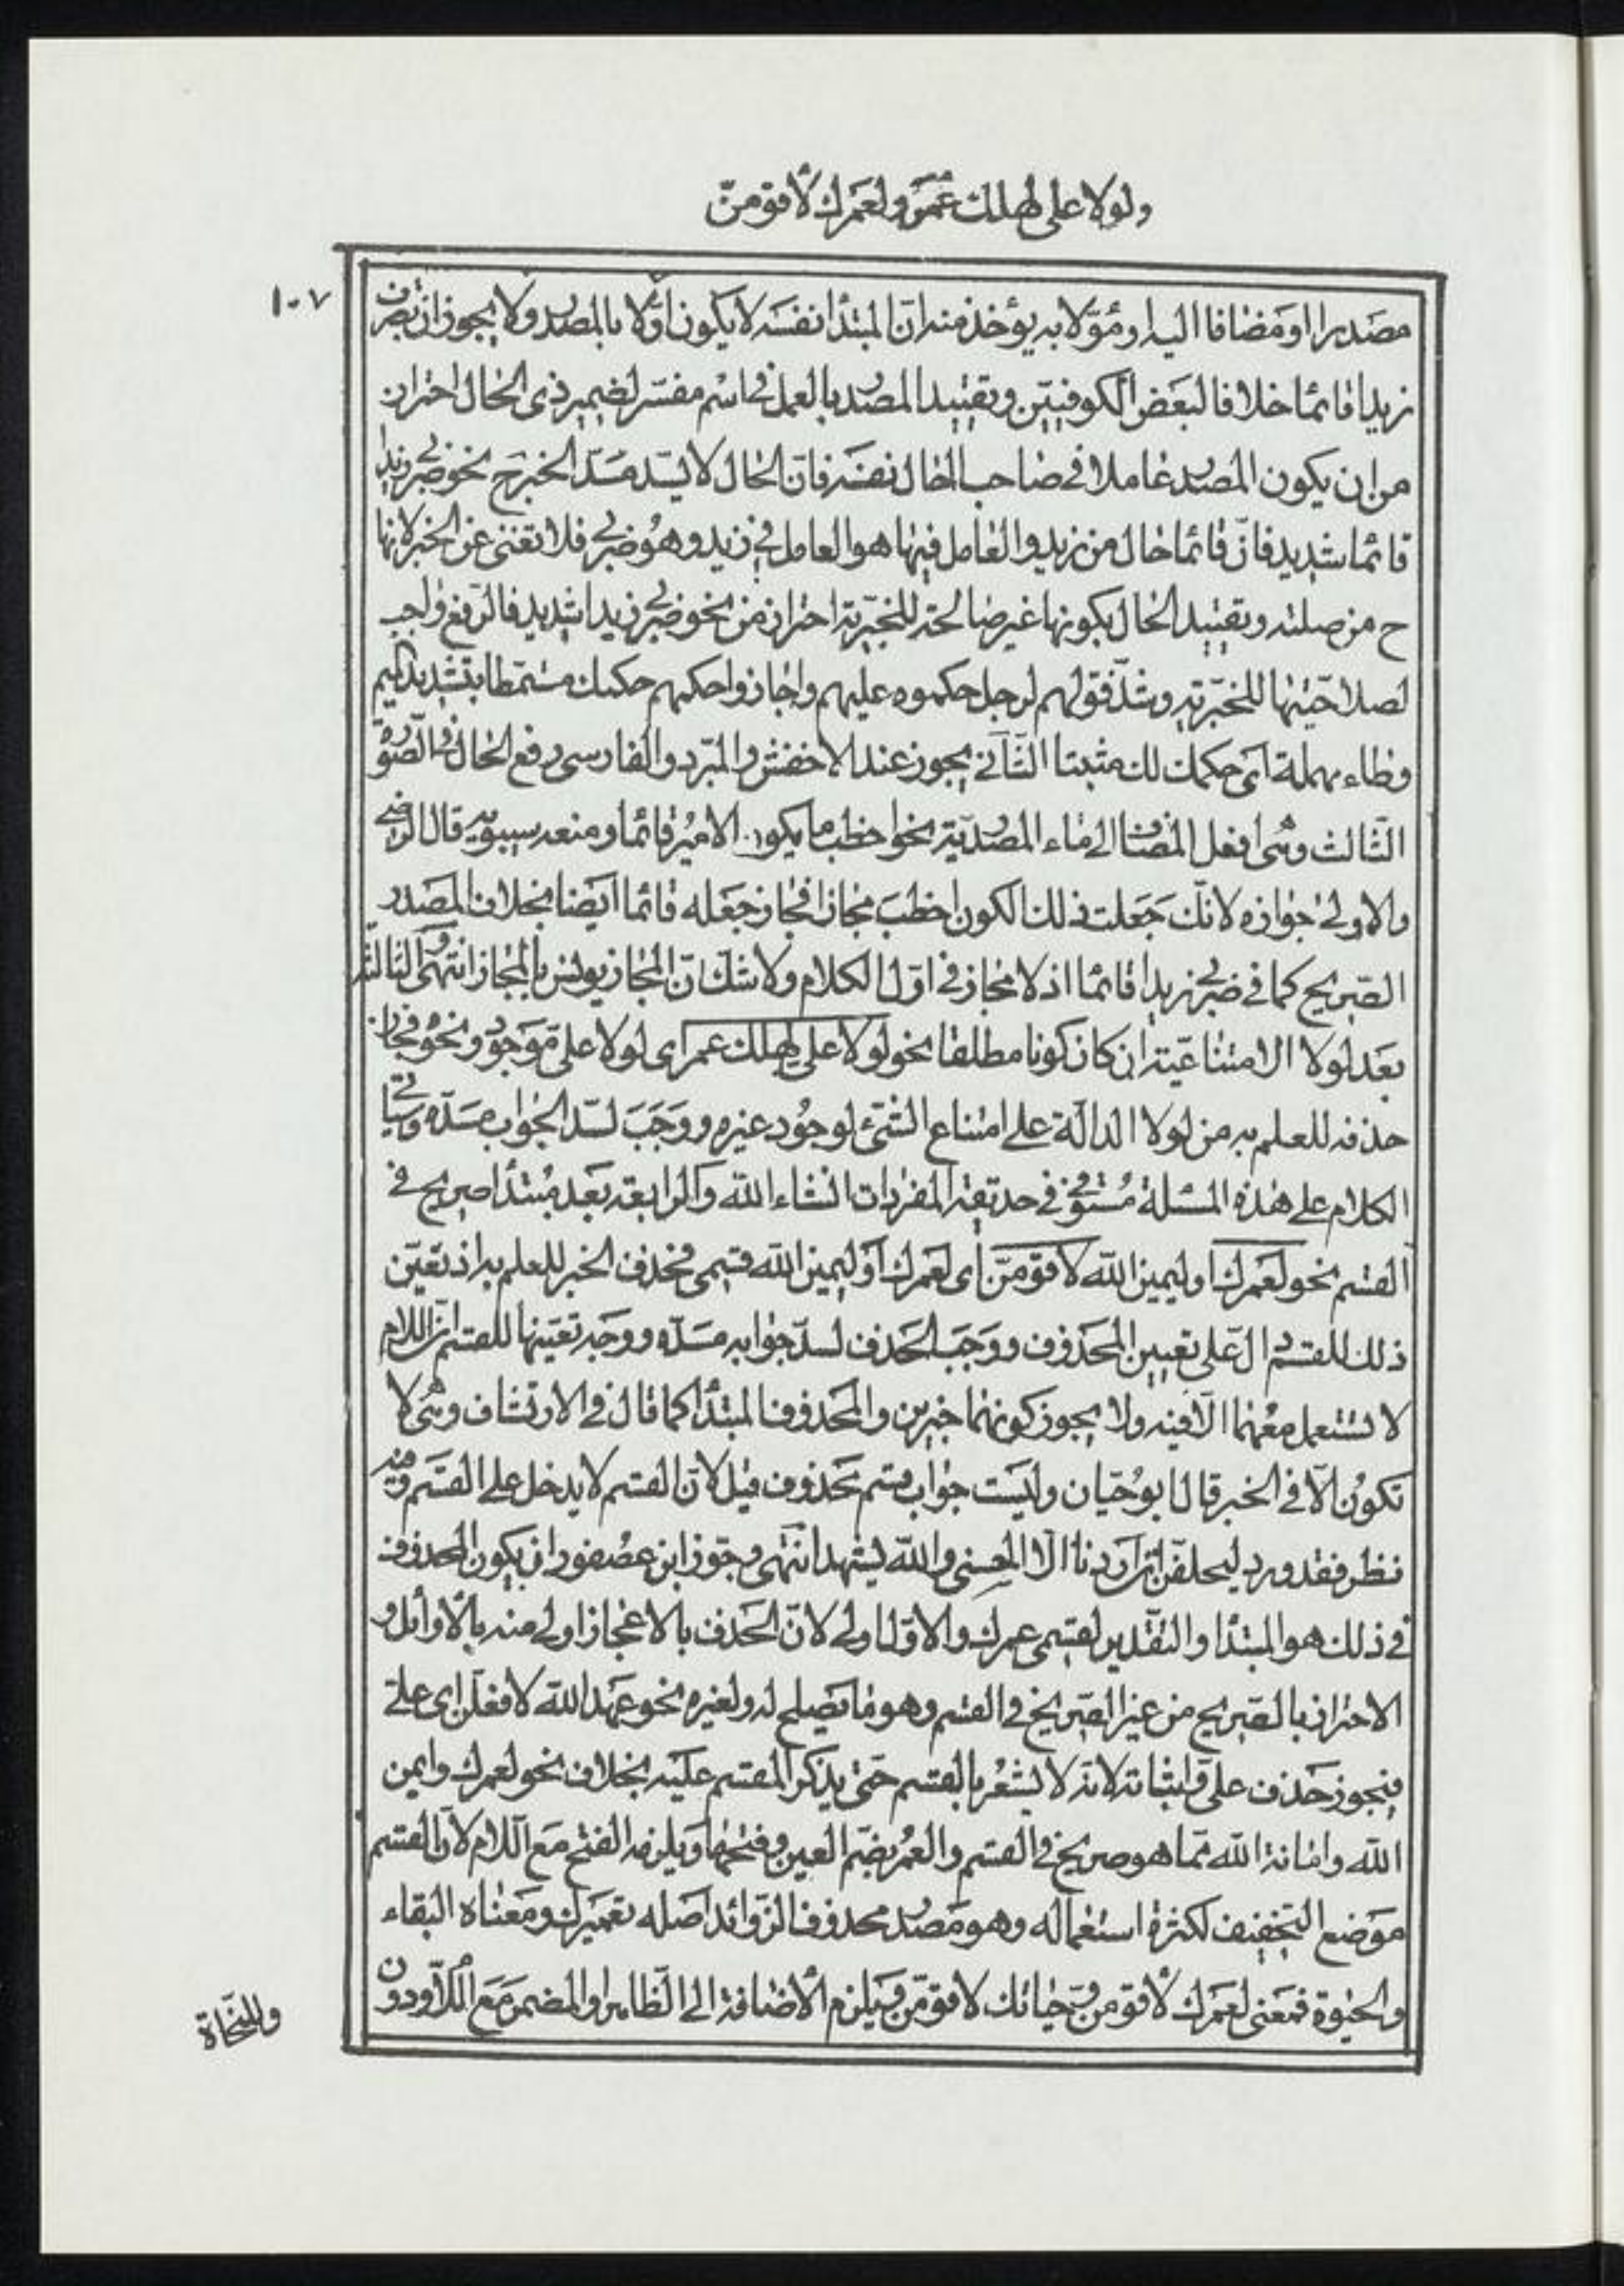 ولولا على لهلك عمر ولعمرك لأقومنّ
١٠٧
مصدرا او مضافا اليه او مؤوّلا به يؤخذ منه انّ المبتدأ نفسه لا يكون اوّلا بالمصدر ولا يجوز ان تضرب
زيدا قائما خلافا لبعض الكوفيّين وتقييد المصدر بالعمل في اسم مفسّر لضمير ذى الحال احتراز
من ان يكون المصدر عاملا في صاحب الحال نفسه فانّ الحال لا يسدّ مسدّ الخبر ح نحو ضربى زيدا
قائما شديد فانّ قائما حال من زيد والعامل فيها هو العامل في زيد وهو ضربى فلا تغنى عن الخبر لانها
ح من صلته وتقييد الحال بكونها غير صالحة للخبريّة احتراز من نحو ضربى زيدا شديد فالرّفع واجب
لصلاحيّتها للخبريّة وشذّ قولهم لرجل حكموه عليهم واجازوا حكمهم حكمك مسمّطا بتشديد الميم
وطاء مهملة اى حكمك لك مثبتا الثّاني يجوز عند الاخفش والمبرّد والفارسى رفع الحال في الصّورة
الثّالث وهى افعل المضاف الى ماء المصدريّة نحو اخطب ما يكون الامير قائما ومنعه سيبويه قال الرضى
والاولى جوازه لانّك جعلت ذلك الكون اخطب مجازا فجاز جعله قائما ايضا بخلاف المصدر
الصّريح كما في ضربى زيدا قائما اذ لا مجاز في اوّل الكلام ولا شكّ انّ المجاز يونس بالمجاز انتهى و الثالثة
بعد لولا الامتناعيّة ان كان كونا مطلقا نحو لولا علىّ لهلك عمر اى لولا علىّ موجود ونحوه فجاز
حذفه للعلم به من لولا الدالّة على امتناع الشّىء لوجود غيره ووجب لسدّ الجواب مسدّه وسياتى
الكلام على هذه المسئلة مستوفى في حديقة المفردات انشاء الله والرابعة بعد مبتدأ صريح في
القسم نحو لعمرك او ليمين الله لاقومنّ اى لعمرك او ليمين الله قسمى فحذف الخبر للعلم به اذ تعيّن
ذلك للقسم دالّ على تعيين المحذوف ووجب الحذف لسدّ جوابه مسدّه ووجه تعيّنها للقسم انّ اللام
لا تستعمل معهما الّا فيه ولا يجوز كونهما خبرين والمحذوف المبتدأ كما قال في الارتشاف وهى لا
تكون الّا في الخبر قال ابو حيّان وليست جواب قسم محذوف قيل لانّ القسم لا يدخل على القسم وفيه
نظر فقد ورد ليحلفنّ ان اردنا الّا الحسنى والله يشهد انتهى وجوّز ابن عصفور ان يكون المحذوف
في ذلك هو المبتدأ والتقدير لقسمى عمرك والاوّل اولى لانّ الحذف بالاعجاز اولى منه بالأوائل و
الاحتراز بالصّريح من غير الصّريح في القسم وهو ما يصلح له ولغيره نحو عهد الله لافعلنّ اى علىّ
فيجوز حذف علىّ واثباته لانّه لا يشعر بالقسم حتى يذكر المقسم عليه بخلاف نحو لعمرك وايمن
الله وامانة الله ممّا هو صريح في القسم والعمر بضمّ العين وفتحها ويلزمه الفتح مع اللام لانّ القسم
موضع التخفيف لكثرة استعماله وهو مصدر محذوف الزّوائد اصله تعميرك ومعناه البقاء
والحيوة فمعنى لعمرك لأقومنّ وحياتك لاقومنّ ويلزم الأضافة الى الظّاهر او المضمر مع اللّام ودون
وللنّحاة